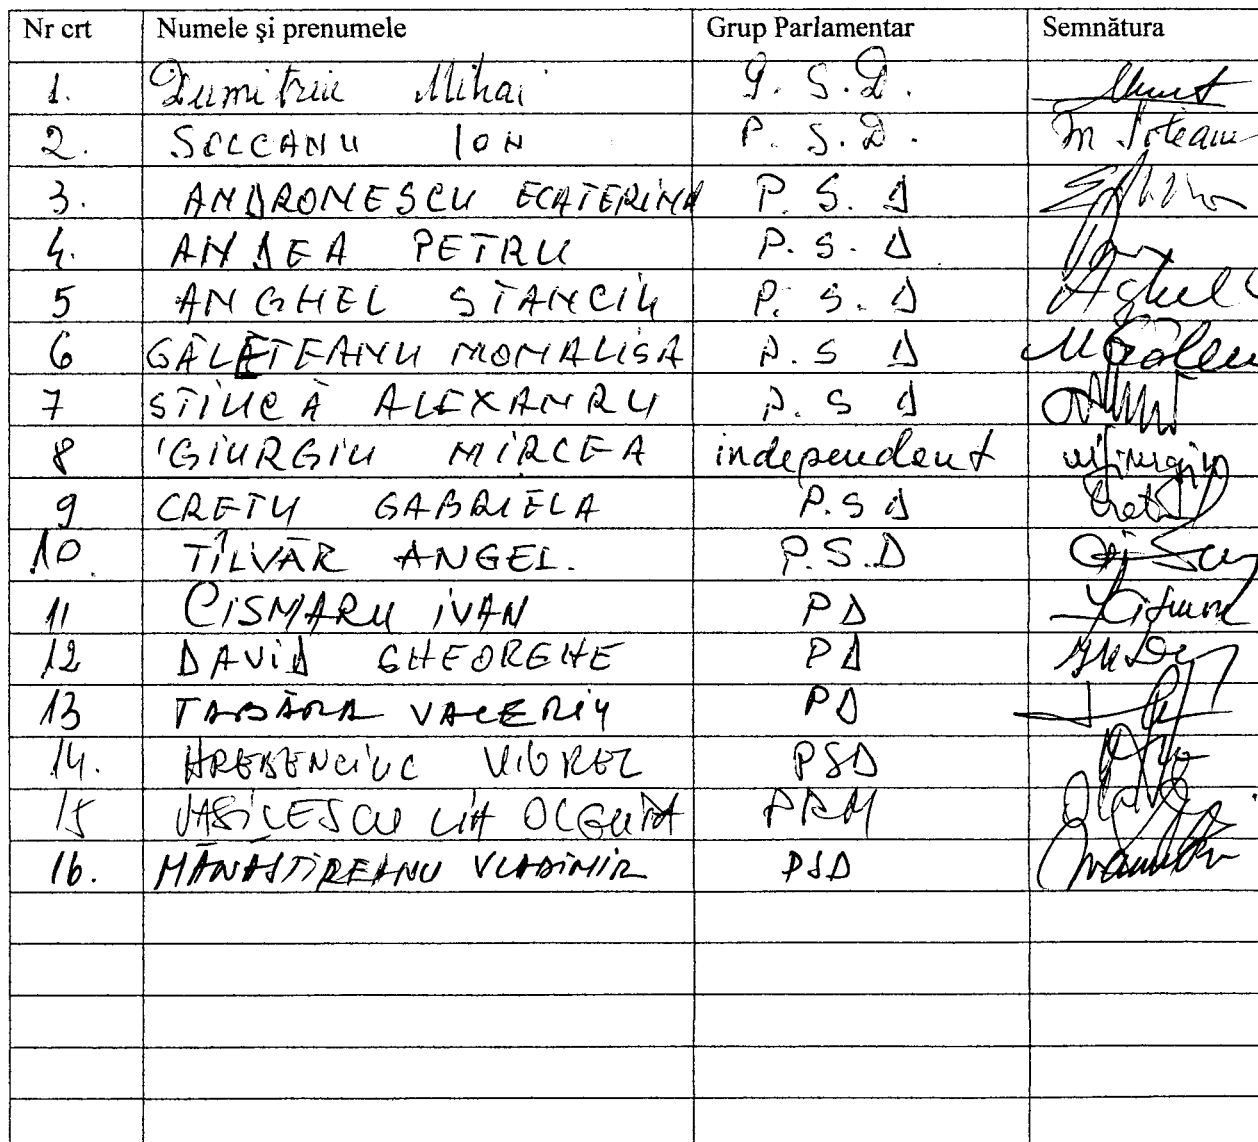 Nr crt Numele şi prenumele Grup Parlamentar Semnătura
1. Dumitriu Mihai P. S. D.
2. SOLCANU ION P. S. D.
3. ANDRONESCU ECATERINA P. S. D
4. ANDEA PETRU P. S. D
5 ANGHEL STANCIU P. S. D
6 GĂLĂTEANU MONALISA P. S D
7 STIUCĂ ALEXANRU P. S D
8 GIURGIU MIRCEA independent
9 CRETU GABRIELA P. S D
10. TÎLVĂR ANGEL. P.S.D
11 CISMARU IVAN PD
12 DAVID GHEORGHE PD
13 TABĂRA VALERIU PD
14. HREBENCIUC VIOREL PSD
15 VASILESCU LIA OLGUTA PRM
16. MĂNĂSTIREANU VLADIMIR PSD